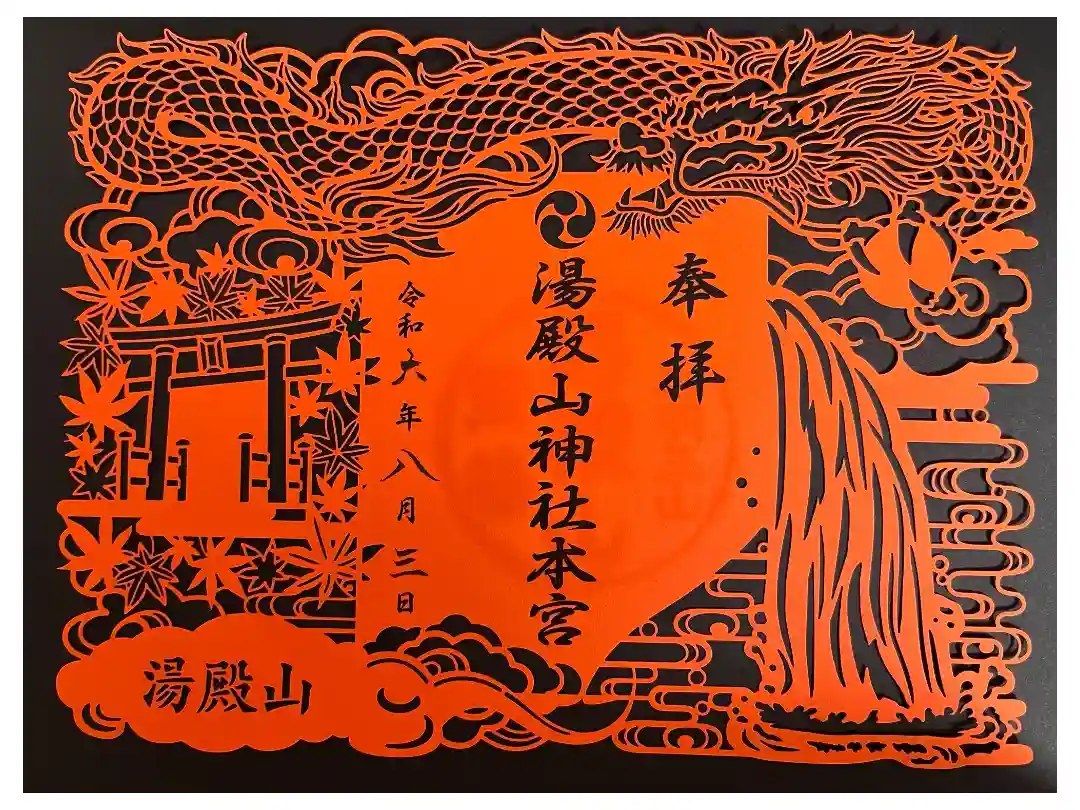 奉拝
湯殿山神社本宮
令和六年八月三日
湯殿山